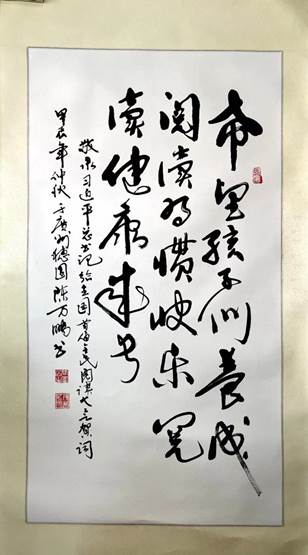 希望孩子们养成
阅读习惯快乐阅
读健康成长
敬录习近平总书记给全国首届全民阅读大会贺词
甲辰年仲秋于广州穗园陈万鹏书